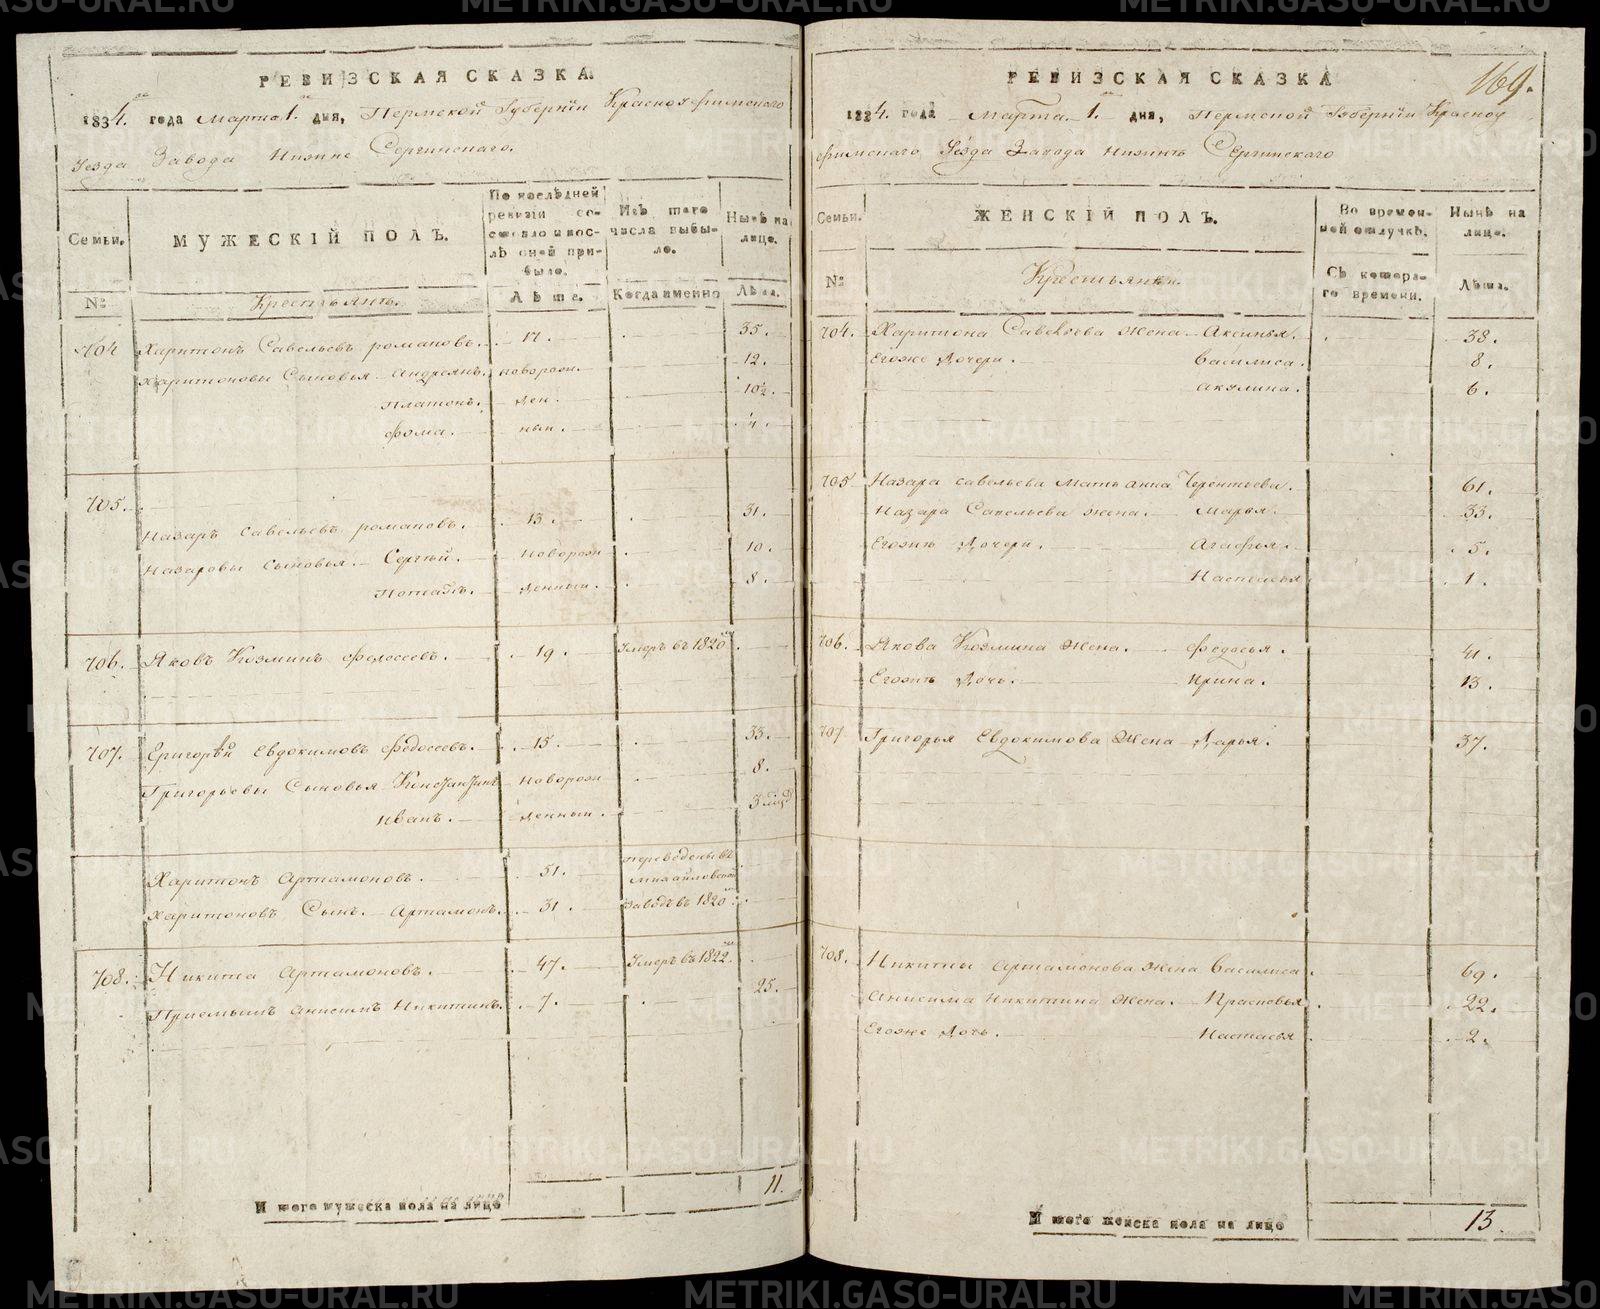 РЕВИЗСКАЯ СКАЗКА.
1834. года Марта 1. дня, Пермской Губернiи Красноуфимскаго
Уезда Завода Нижне Сергинскаго.
Семьи.
МУЖЕСКIЙ ПОЛЪ.
По послѣдней ревизiи состояло и послѣ оной прибыло.
Изъ того числа выбыло.
Нынѣ на лице.
№
Крестьянъ.
Лѣта.
Когда именно
Лѣта.
704 Харитонъ Савельевъ романовъ. 17. 35.
Харитоновы Сыновья Андреянъ. новорож. 12.
Платонъ. ден. 10½.
Фома. ныи. 4.
705.
Назаръ Савельевъ романовъ. 13. 31.
Назаровы сыновья. Сергѣй. новорож 10.
Потапъ. денныи. 8.
706. Яковъ Козминъ Федосеевъ. 19. Умеръ въ 1820
707. Григорѣй Евдокимовъ Федосеевъ. 15. 33.
Григорьевы Сыновья Констянтинъ новорож 8.
Иванъ. денныи. 3 мѣц
Харитонъ Артамоновъ. 51. переведены въ Михайловской
Харитоновъ Сынъ. Артамонъ. 31. Заводъ въ 1820
708. Никита Артамоновъ. 47. Умеръ въ 1822.
Приемышъ Анисимъ Никитинъ. 7. 25.
Итого мужеска пола на лице 11.
169.
РЕВИЗСКАЯ СКАЗКА
1834. года Марта 1. дня, Пермской Губернiи Красноу
фимскаго Уезда Завода Нижнѣ Сергинскаго
Семьи.
ЖЕНСКIЙ ПОЛЪ.
Во временной отлучкѣ.
Нынѣ на лице.
№
Крестьянки.
Съ котораго времени.
Лѣта.
704. Харитона Савельева жена Аксинья. 38.
Егоже Дочери. Василиса. 8.
Акулина. 6.
705 Назара савельева мать анна Терентьева. 61.
Назара Савельева жена. Марья. 33.
Егожъ Дочери. Агафья. 5.
Настасья 1.
706. Якова Козмина жена. Федосья. 41.
Егожъ Дочь. Ирина. 13.
707 Григорья Евдокимова Жена Дарья. 37.
708. Никиты Артамонова жена Василиса. 69.
Анисима Никитина жена. Прасковья 22.
Егоже Дочь. Настасья 2.
Итого женска пола на лице 13.
METRIKI.GASO-URAL.RU